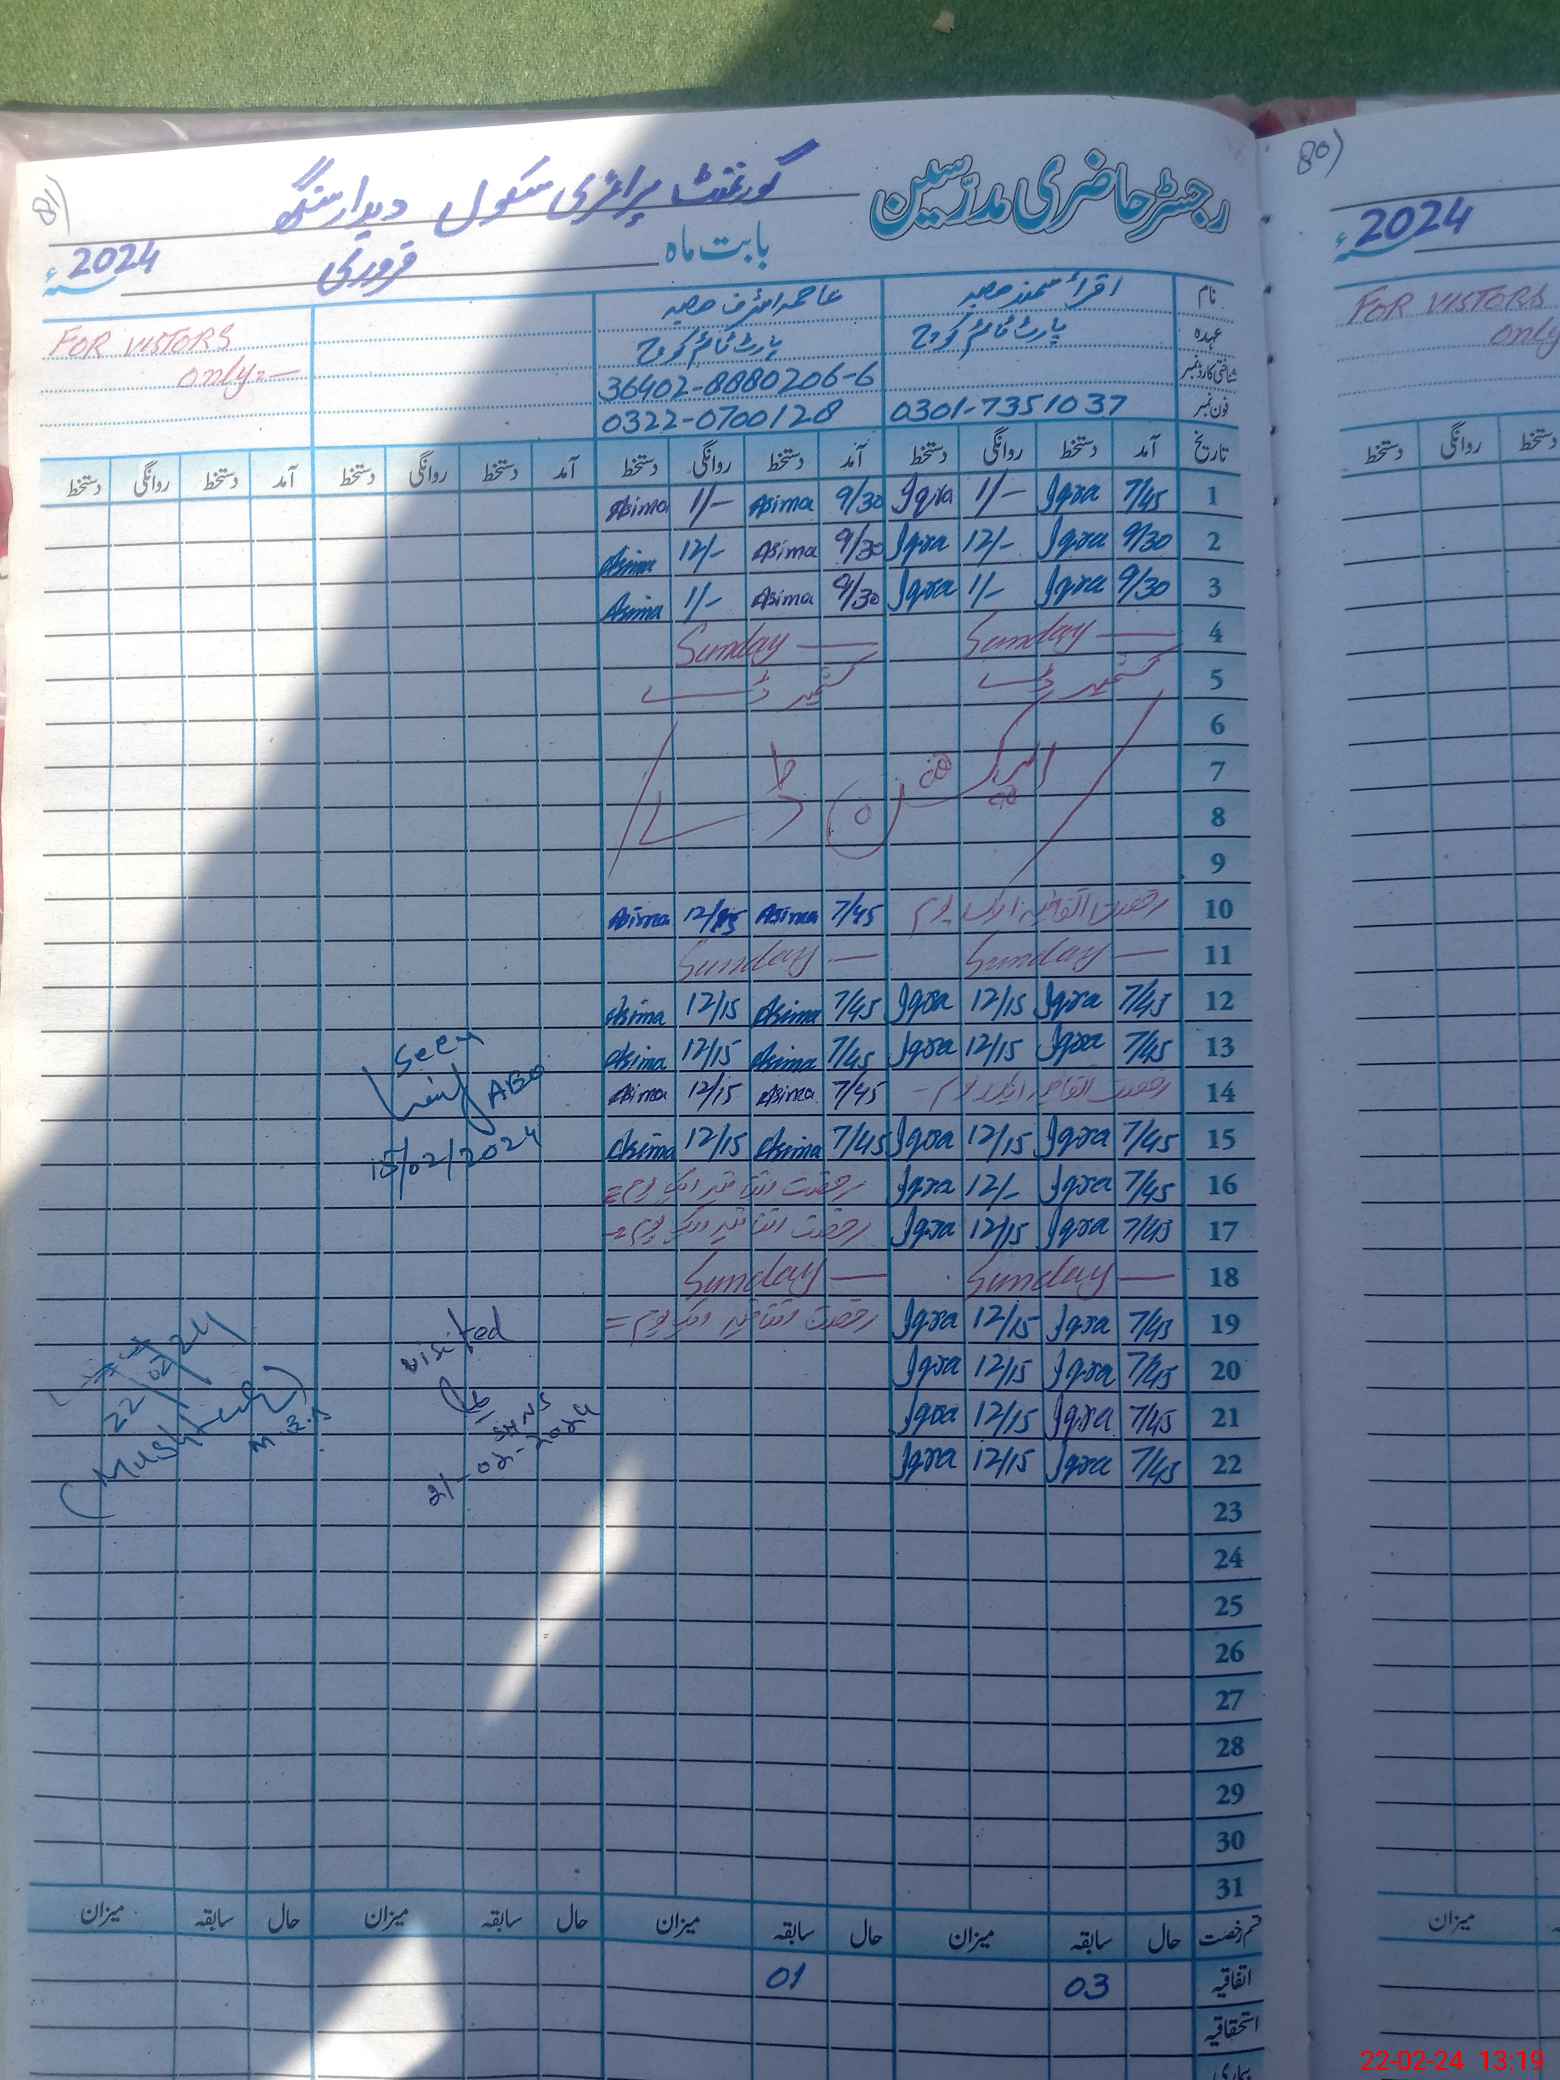 81)
رجسٹر حاضری مدرّسین گورنمنٹ پرائمری سکول دیدار سنگھ
بابت ماہ فروری 2024ء
نام اقراء صاحبہ عاصمہ اشرف صاحبہ
عہدہ پارٹ ٹائم کوچ پارٹ ٹائم کوچ FOR VISTORS
شناختی کارڈ نمبر 36402-8880206-6 only:-
فون نمبر 0301-7351037 0322-0700128
تاریخ آمد دستخط روانگی دستخط آمد دستخط روانگی دستخط آمد دستخط روانگی دستخط آمد دستخط روانگی دستخط
1 7/45 Iqra 1/- Iqra 9/30 Asima 1/- Asima
2 9/30 Iqra 12/- Iqra 9/30 Asima 12/- Asima
3 9/30 Iqra 1/- Iqra 9/30 Asima 1/- Asima
4 Sunday — Sunday —
5 کشمیر ڈے کشمیر ڈے
6
7 الیکشن ڈے
8
9
10 رخصت اتفاقیہ ایک یوم 7/45 Asima 12/15 Asima
11 Sunday — Sunday —
12 7/45 Iqra 12/15 Iqra 7/45 Asima 12/15 Asima
13 7/45 Iqra 12/15 Iqra 7/45 Asima 12/15 Asima
14 رخصت اتفاقیہ ایک یوم - 7/45 Asima 12/15 Asima
15 7/45 Iqra 12/15 Iqra 7/45 Asima 12/15 Asima
16 7/45 Iqra 12/- Iqra رخصت اتفاقیہ ایک یوم =
17 7/45 Iqra 12/15 Iqra رخصت اتفاقیہ ایک یوم =
18 Sunday — Sunday —
19 7/45 Iqra 12/15 Iqra رخصت اتفاقیہ ایک یوم =
20 7/45 Iqra 12/15 Iqra
21 7/45 Iqra 12/15 Iqra
22 7/45 Iqra 12/15 Iqra
23
24
25
26
27
28
29
30
31
Seen
AEO
15/02/2024
visited
21-02-2024
22 02 24
(Mushtaq)
قسم رخصت حال سابقہ میزان حال سابقہ میزان حال سابقہ میزان حال سابقہ میزان
اتفاقیہ 03 01
استحقاقیہ
بیماری
80)
2024ء
FOR VISTORS
only
روانگی دستخط
دستخط
میزان
22-02-24 13:19